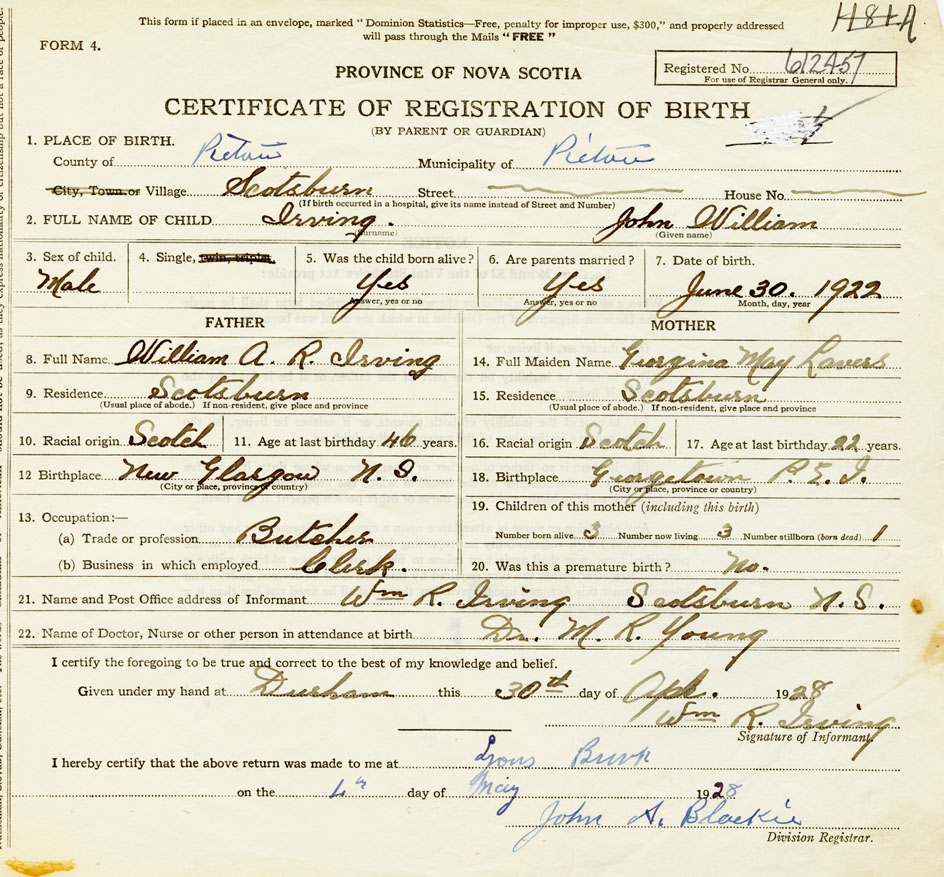 H8HA
This form if placed in an envelope, marked "Dominion Statistics—Free, penalty for improper use, $300," and properly addressed
will pass through the Mails "FREE"
FORM 4.
PROVINCE OF NOVA SCOTIA
Registered No. 612457
For use of Registrar General only.
CERTIFICATE OF REGISTRATION OF BIRTH
(BY PARENT OR GUARDIAN)
1. PLACE OF BIRTH.
County of Pictou Municipality of Pictou
City, Town or Village Scotsburn Street House No.
(If birth occurred in a hospital, give its name instead of Street and Number)
2. FULL NAME OF CHILD Irving. John William
(Surname) (Given name)
3. Sex of child. 4. Single, twin, triplet, 5. Was the child born alive? 6. Are parents married? 7. Date of birth.
Male Yes Yes June 30. 1922
Answer, yes or no Answer, yes or no Month, day, year
FATHER MOTHER
8. Full Name William A. R. Irving 14. Full Maiden Name Georgina May Lavers
9. Residence Scotsburn 15. Residence Scotsburn
(Usual place of abode.) If non-resident, give place and province (Usual place of abode.) If non-resident, give place and province
10. Racial origin Scotch 11. Age at last birthday 46 years. 16. Racial origin Scotch 17. Age at last birthday 22 years.
12 Birthplace New Glasgow N. S. 18. Birthplace Georgetown P. E. I.
(City or place, province or country) (City or place, province or country)
19. Children of this mother (including this birth)
13. Occupation:—
(a) Trade or profession Butcher Number born alive 3 Number now living 3 Number stillborn (born dead) 1
(b) Business in which employed Clerk. 20. Was this a premature birth? No.
21. Name and Post Office address of Informant Wm R. Irving Scotsburn N. S.
22. Name of Doctor, Nurse or other person in attendance at birth Dr. M. R. Young
I certify the foregoing to be true and correct to the best of my knowledge and belief.
Given under my hand at Durham this 30th day of Apl. 1928
Wm R. Irving
Signature of Informant.
I hereby certify that the above return was made to me at Lyons Brook
on the 4th day of May 1928
John A. Blackie
Division Registrar.